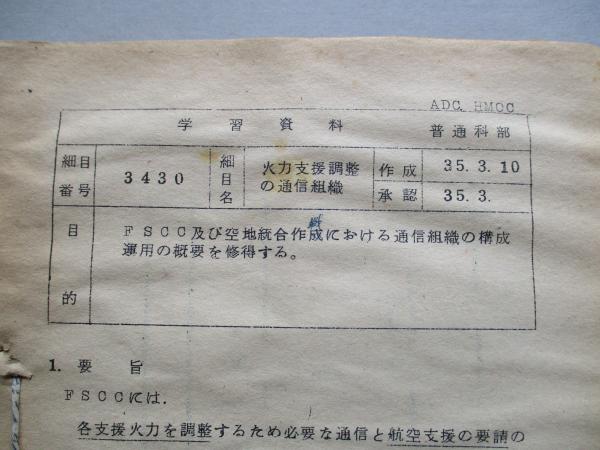 ADC. HMOC
学習資料
普通科部
細目番号
3430
細目名
火力支援調整
の通信組織
作成
35.3.10
承認
35.3.
目的
FSCC及び空地統合作成における通信組織の構成
運用の概要を修得する。
1. 要旨
FSCCには.
各支援火力を調整するため必要な通信と航空支援の要請の